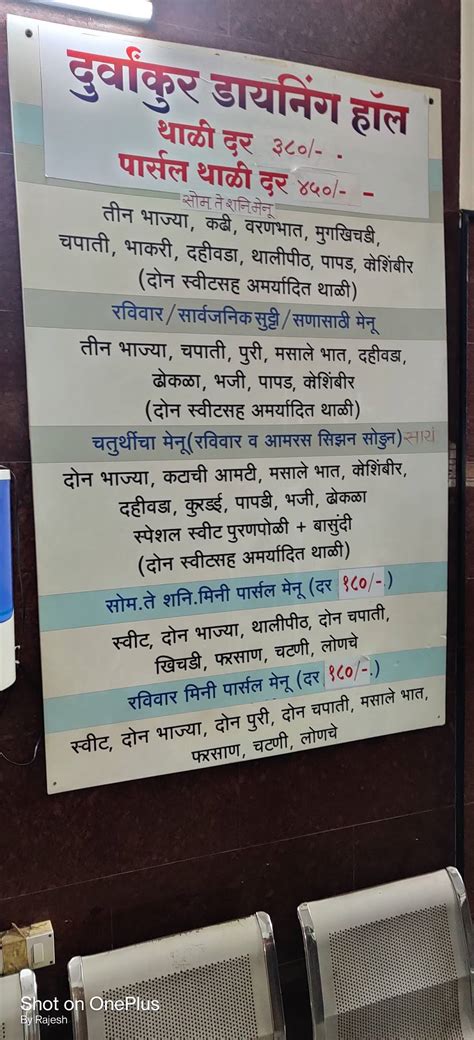 दुर्वांकुर डायनिंग हॉल
थाळी दर ३८०/- -
पार्सल थाळी दर ४५०/- -
सोम. ते शनि. मेनू
तीन भाज्या, कढी, वरणभात, मुगखिचडी,
चपाती, भाकरी, दहीवडा, थालीपीठ, पापड, कोशिंबीर
(दोन स्वीटसह अमर्यादित थाळी)
रविवार/सार्वजनिक सुट्टी/सणासाठी मेनू
तीन भाज्या, चपाती, पुरी, मसाले भात, दहीवडा,
ढोकळा, भजी, पापड, कोशिंबीर
(दोन स्वीटसह अमर्यादित थाळी)
चतुर्थीचा मेनू(रविवार व आमरस सिझन सोडुन) सायं
दोन भाज्या, कटाची आमटी, मसाले भात, कोशिंबीर,
दहीवडा, कुरडई, पापडी, भजी, ढोकळा
स्पेशल स्वीट पुरणपोळी + बासुंदी
(दोन स्वीटसह अमर्यादित थाळी)
सोम. ते शनि. मिनी पार्सल मेनू (दर १८०/-.)
स्वीट, दोन भाज्या, थालीपीठ, दोन चपाती,
खिचडी, फरसाण, चटणी, लोणचे
रविवार मिनी पार्सल मेनू (दर १८०/-.)
स्वीट, दोन भाज्या, दोन पुरी, दोन चपाती, मसाले भात,
फरसाण, चटणी, लोणचे
Shot on OnePlus
By Rajesh